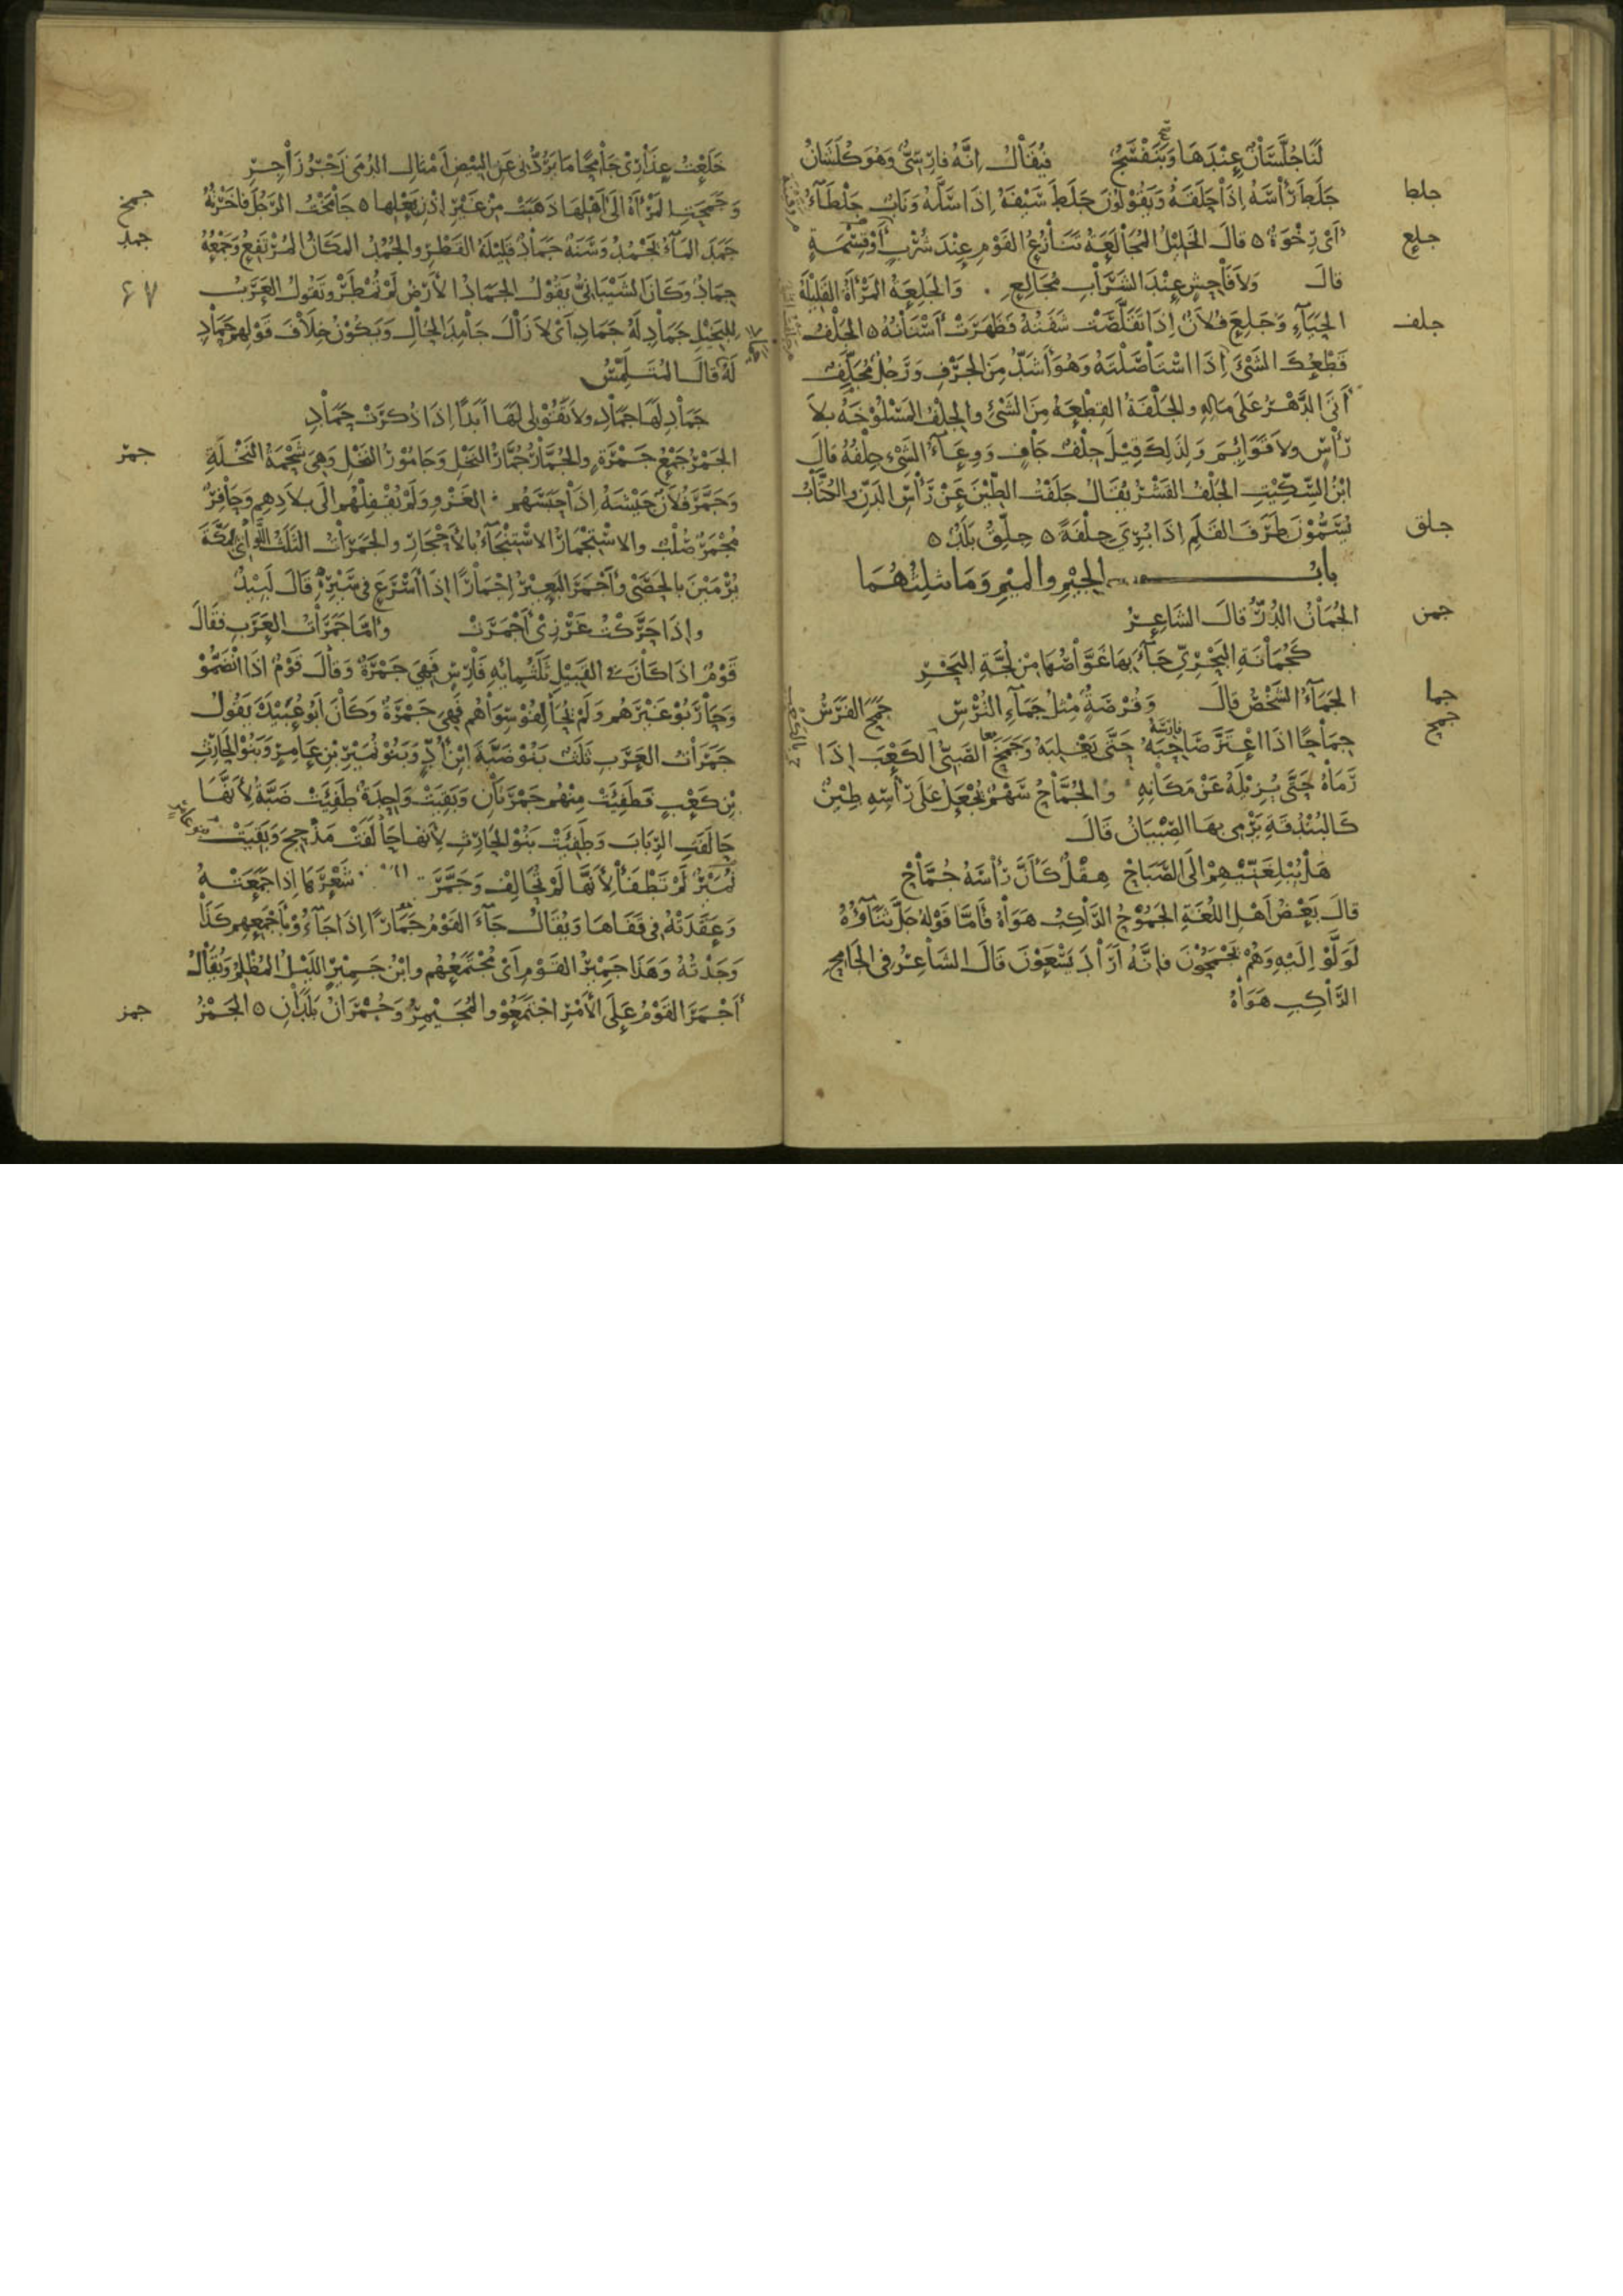 لَنَا جُلَّسَانٌ عِنْدَهَا وَبَنَفْسَجٌ فيُقَالُ اِنَّهُ فارِسِيٌّ وَهُوَ كُلَشَانُ
جلط جَلَطَ رَأْسَهُ اِذَا حَلَقَهُ وَيَقُولُوْنَ جَلَطَ سَيْفَهُ اِذَا سَلَّهُ وَنَابٌ جَلْطَآءُ
جلع أَىْ رِخْوَةٌ ٥ قالَ الخَلِيْلُ المُجَالَعَةُ تَنَازُعُ القَوْمِ عِنْدَ شُرْبٍ أَوْ قِسْمَةٍ
قالَ وَلاَ فَاحِشٍ عِنْدَ الشَّرَابِ مُجَالِعِ . وَالجَلِعَةُ المَرْأَةُ القَلِيْلَةُ
جلف الحَيَآءِ وَجَلِعَ فُلاَنٌ اِذَا تَقَلَّصَتْ شَفَتُهُ فَظَهَرَتْ أَسْنَانُهُ ٥ الجَلْفُ
قَطْعُكَ الشَّئَ اِذَا اسْتَأْصَلْتَهُ وَهُوَ أَشَدُّ مِنَ الجَرْفِ وَرَجُلٌ مُجَلَّفٌ
أَتَى الدَّهْرُ عَلَى مَالِهِ والجِلْفَةُ القِطْعَةُ مِنَ الشَّئِ والجِلْفُ المَسْلُوْخَةُ بِلاَ
رَأْسٍ ولاَ قَوَائِمَ وَلِذَلِكَ قِيْلَ جِلْفٌ جَافٍ وَوِعَآءُ الشَّئِ جِلْفُهُ قالَ
ابْنُ السِّكِّيْتِ الجَلْفُ القَشْرُ يُقَالُ جَلَفْتُ الطِّيْنَ عَنْ رَأْسِ الدَّنِّ والكُتَّابُ
جلق يُسَمُّوْنَ طَرَفَ القَلَمِ اِذَا بُرِيَ جِلْفَةً ٥ جِلِّقُ بَلَدٌ ٥
بابُ الجِيْمِ والمِيْمِ وَمَا يثلِثُهُمَا
جمن الجُمَانُ الدُّرُّ قالَ الشَّاعِرُ
كَجُمَانَةِ البَحْرِيِّ جَآءَ بِهَا غَوَّاصُهَا مِنْ لُجَّةِ البَحْرِ
جما الجَمَآءُ الشَّخْصُ قالَ وَقُرْصَةٍ مِثْلِ جَمَآءِ التُّرْسِ جَمَحَ الفَرَسُ
جمح جِمَاحًا اذَا اعْتَزَّ صَاحِبَهُ حَتَّى يَغْلِبَهُ وَجَمَحَ الصَّبِيُّ الكَعْبَ اِذَا
رَمَاهُ حَتَّى يُزِيْلَهُ عَنْ مَكَانِهِ وَالجُمَّاحُ سَهْمٌ يُجْعَلُ عَلَى رَأْسِهِ طِيْنٌ
كَالبُنْدُقَةِ يَرْمِى بِهَا الصِّبْيَانُ قَالَ
هَلْ يُبْلِغَنِّيْهِمْ الَى الصَّبَاحْ هِقْلٌ كَأَنَّ رَأْسَهُ جُمَّاحْ
قالَ بَعْضُ أَهْلِ اللُّغَةِ الجَمُوْحُ الرَّاكِبُ هَوَاهُ فَأَمَّا قَوْلُهُ جَلَّ ثَنَآؤُهُ
لَوَلَّوْا اِلَيْهِ وَهُمْ يَجْمَحُوْنَ فاِنَّهُ أَرَادَ يَسْعَوْنَ قَالَ الشَّاعِرُ فى الجَامِحِ
الرَّاكِبِ هَوَاهُ
خَلَعْتُ عِذَارِىْ جَامِحًا مَا يَرُدُّنِى عَنِ البِيْضِ أَمْثَالِ الدُّمَى زَجْرُ زَاجِرِ
جمخ وَجَمَحَتِ المَرْأَةُ الَى أَهْلِهَا ذَهَبَتْ مِنْ غَيْرِ اِذْنِ بَعْلِهَا ٥ جَامَخْتُ الرَّجُلَ فَاخَرْتُهُ
جمد جَمَدَ المَآءُ يَجْمُدُ وَسَنَةٌ جَمَادٌ قَلِيْلَةُ القَطْرِ والجُمُدُ المكَانُ المُرْتَفِعُ وَجَمْعُهُ
٤٧ جِمَادٌ وَكَانَ الشَّيْبَانِيُّ يَقُوْلُ الجَمَادُ الأَرْضُ لَمْ تُمْطَرْ وتَقُولُ العَرَبُ
لِلبَخِيْلِ جَمَادِ لَهُ جَمَادِ أَىْ لاَ زَالَ جَامِدَ الحَالِ وَيَكُوْنُ خِلاَفَ قَوْلِهِمْ حَمَادِ
لَهُ قَالَ المُتَلَمِّسُ
جَمَادِ لَهَا جَمَادِ ولاَ تَقُوْلِى لَهَا أَبَدًا اِذَا ذُكِرَتْ حَمَادِ
جمر الجَمْرُ جَمْعُ جَمْرَةٍ والجُمَّارُ جُمَّارُ النَّخْلِ وَجَامُوْرُ النَّخْلِ وَهِىَ شَحْمَةُ النَّخْلَةِ
وَجَمَّرَ فُلاَنٌ جَيْشَهُ اِذَا حَبَسَهُمْ فى الغَزْوِ وَلَمْ يُقْفِلْهُمْ الَى بِلاَدِهِمْ وَحَافِرٌ
مُجْمَرٌ صُلْبٌ والاسْتِجْمَارُ الاسْتِنْجَآءُ بالأَحْجَارِ والجَمَرَاتُ الثَّلَثُ اللَّوَاتِى بِمَكَّةَ
يُرْمَيْنَ بالحَصَى وأَجْمَرَ البَعِيْرُ اِجْمَارًا اِذَا أَسْرَعَ فى سَيْرِهِ قَالَ لَبِيْدٌ
واِذَا حَرَّكْتُ غَرْزِىْ أَجْمَرَتْ وأَمَّا جَمَرَاتُ العَرَبِ فقَالَ
قَوْمٌ اذَا كَانَ فى القَبِيْلِ ثَلَثُمِائَةِ فَارِسٍ فَهِىَ جَمْرَةٌ وَقَالَ قَوْمٌ اذَا انْضَمُّوْا
وَحَارَبُوْا غَيْرَهُمْ وَلَمْ يُخَالِفُوْا سِوَاهُمْ فَهِىَ جَمْرَةٌ وَكَانَ أَبُو عُبَيْدٍ يَقُولُ
جَمَرَاتُ العَرَبِ ثَلَثٌ بَنُوْ ضَبَّةَ ابْنِ أُدٍّ وَبَنُوْ نُمَيْرِ بْنِ عَامِرٍ وَبَنُوْ الحَارِثِ
بْنِ كَعْبٍ فَطَفِئَتْ مِنْهُمْ جَمْرَتَانِ وَبَقِيَتْ وَاحِدَةٌ طَفِئَتْ ضَبَّةُ لأَنَّهَا
حَالَفَتِ الرِّبَابَ وَطَفِئَتْ بَنُوْ الحَارِثِ لأَنها حَالَفَتْ مَذْحِجَ وَبَقِيَتْ
نُمَيْرٌ لَمْ تَطْفَأْ لأَنَّهَا لَمْ تُحَالِفْ وَجَمَّرَتْ شَعْرَهَا اِذَا جَمَعَتْهُ
وَعَقَدَتْهُ فِى قَفَاهَا وَيُقَالُ جَآءَ القَوْمُ جَمَارًا اِذَا جَآءُوْا بِأَجْمَعِهِمْ كَذَا
وَجَدْتُهُ وَهَذَا جَمِيْرُ القَوْمِ أَىْ مُجْتَمَعُهُمْ وابْنُ جَمِيْرٍ اللَّيْلُ المُظْلِمُ وَيُقَالُ
جمز أَجْمَرَ القَوْمُ عَلَى الأَمْرِ اجْتَمَعُوْا والمُجَيْمِرُ وَجُمْرَانُ بَلَدَانِ ٥ الجَمْزُ